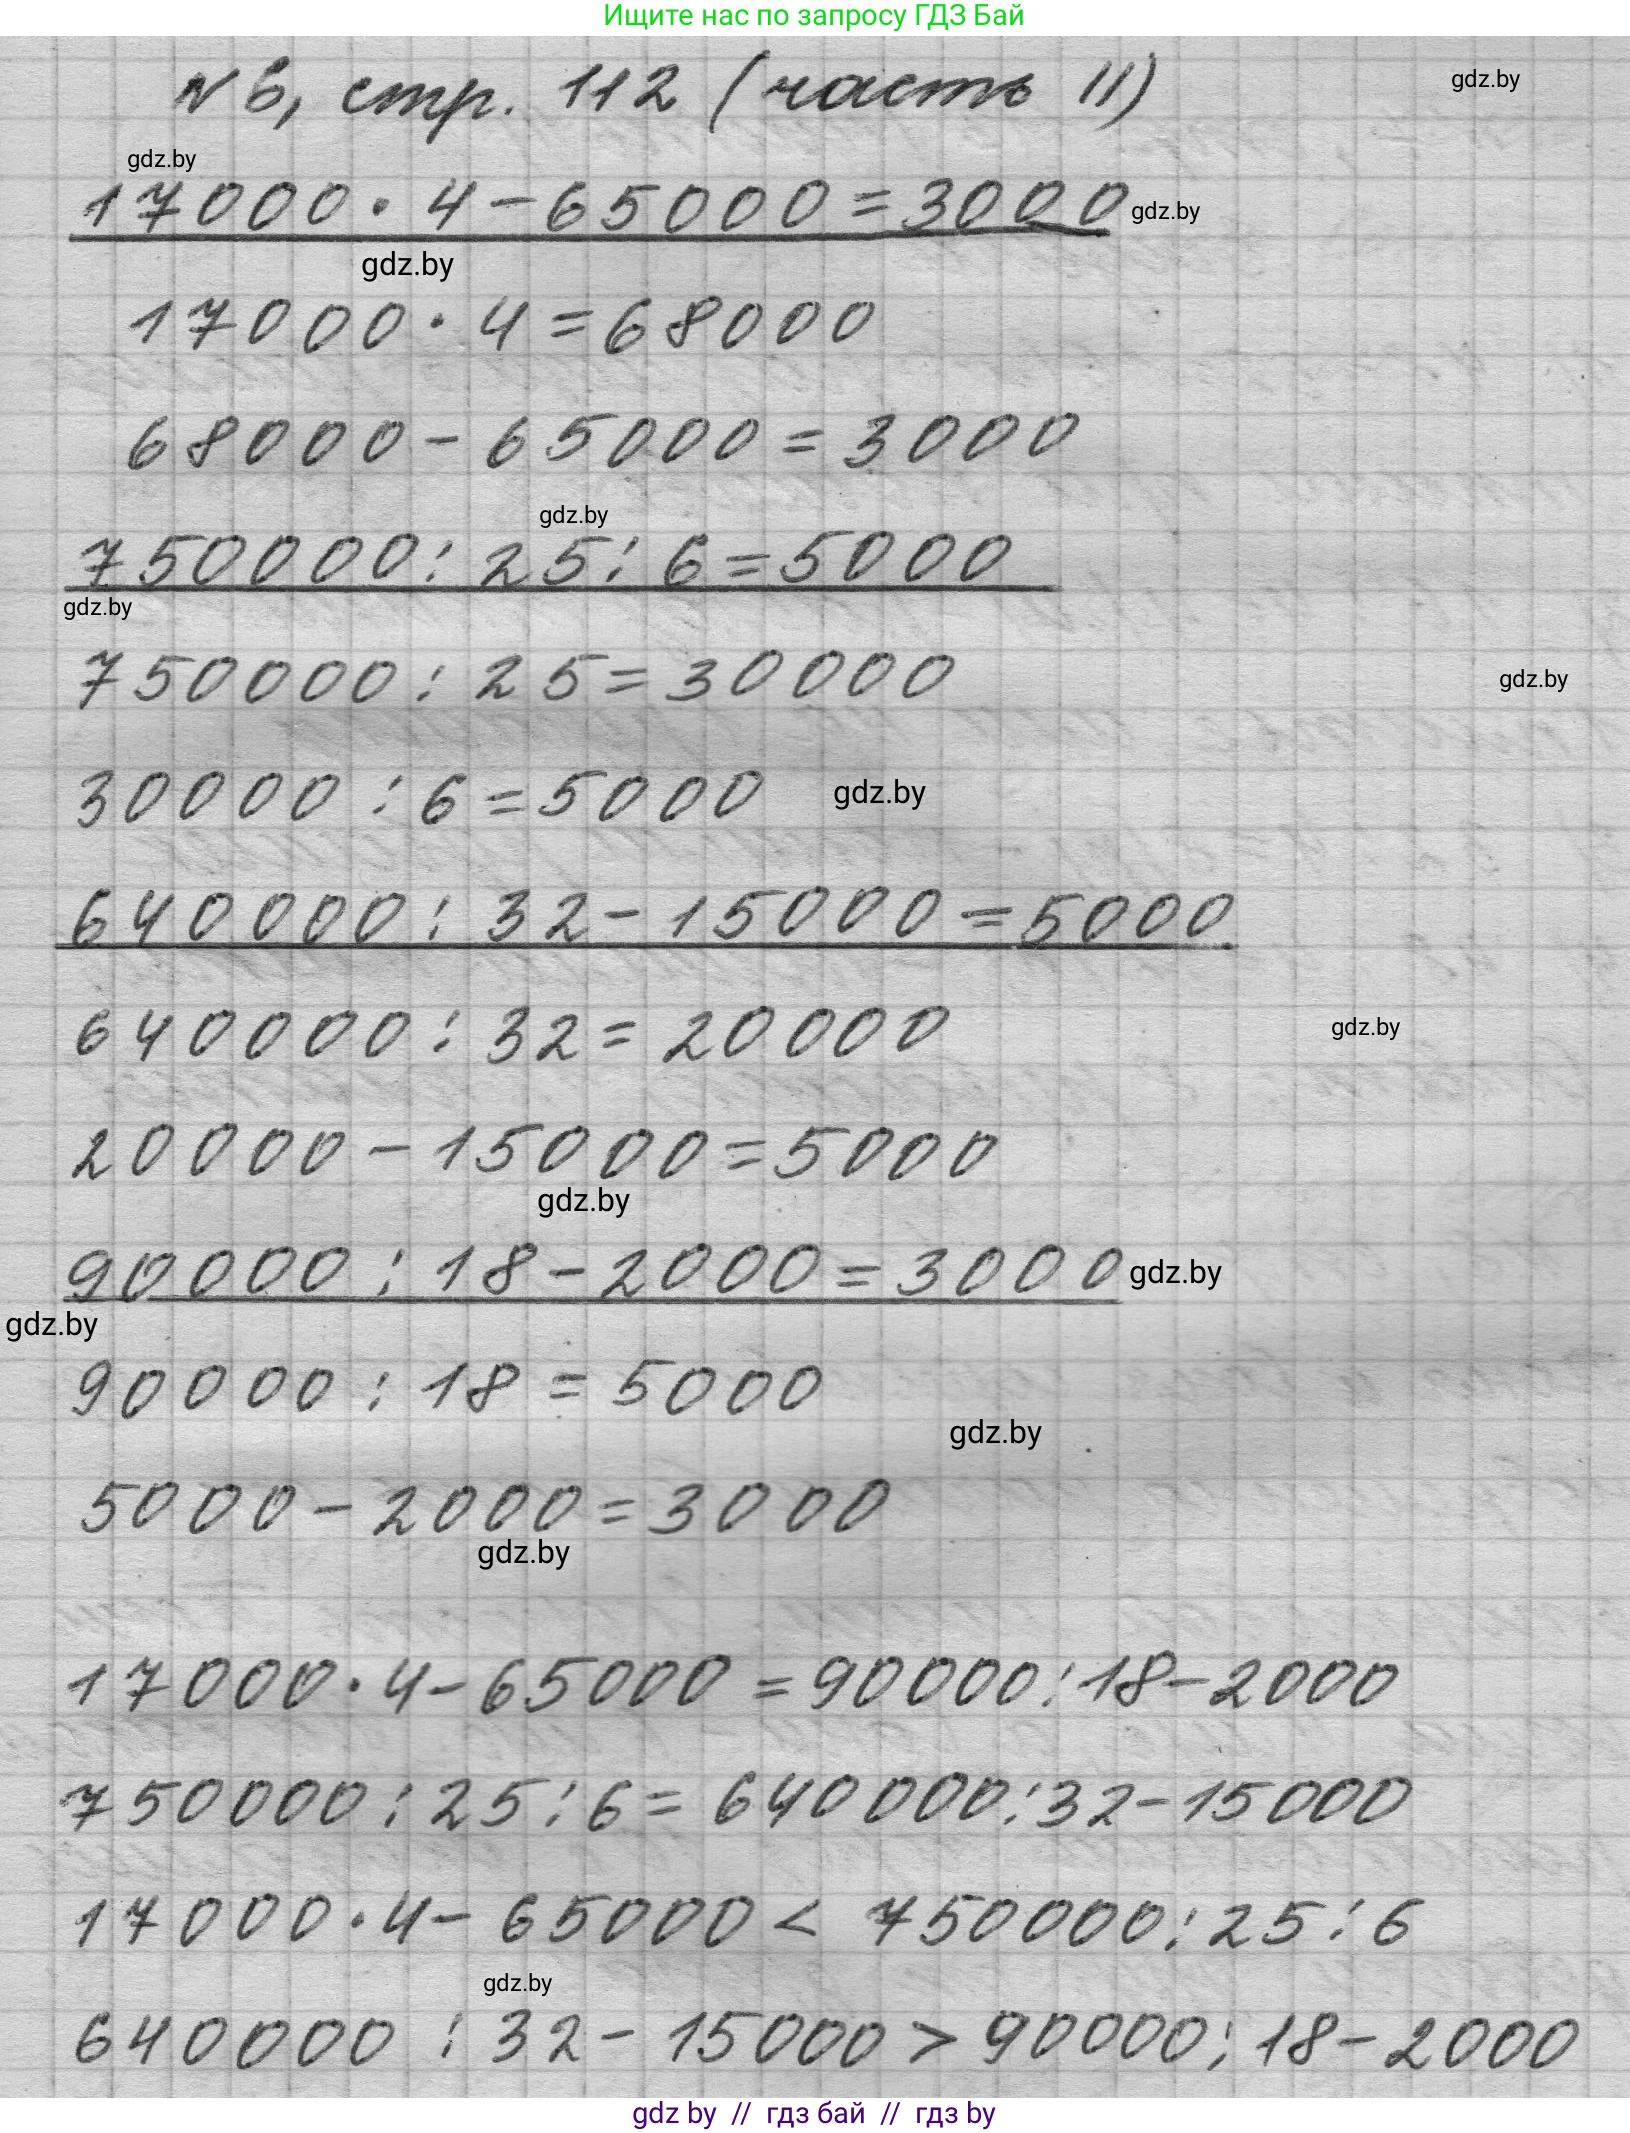 Ищите нас по запросу ГДЗ Бай
N 6, стр. 112 (часть II)
gdz.by
gdz.by
17000 · 4 - 65000 = 3000
gdz.by
gdz.by
17000 · 4 = 68000
68000 - 65000 = 3000
gdz.by
750000 : 25 : 6 = 5000
gdz.by
750000 : 25 = 30000
gdz.by
30000 : 6 = 5000
gdz.by
640000 : 32 - 15000 = 5000
640000 : 32 = 20000
gdz.by
20000 - 15000 = 5000
gdz.by
90000 : 18 - 2000 = 3000
gdz.by
gdz.by
90000 : 18 = 5000
gdz.by
5000 - 2000 = 3000
gdz.by
17000 · 4 - 65000 = 90000 : 18 - 2000
750000 : 25 : 6 = 640000 : 32 - 15000
17000 · 4 - 65000 < 750000 : 25 : 6
gdz.by
640000 : 32 - 15000 > 90000 : 18 - 2000
gdz by // гдз бай // гдз by